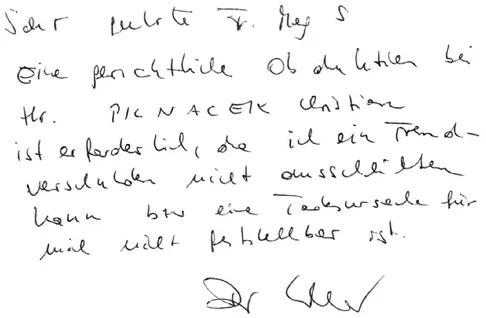 Sehr geehrte Fr. Mag S
Eine gerichtliche Obduktion bei
Hr. PIKNACEK Christian
ist erforderlich, da ich ein Fremd-
verschulden nicht ausschließen
kann bzw eine Todesursache für
mich nicht feststellbar ist.
Dr